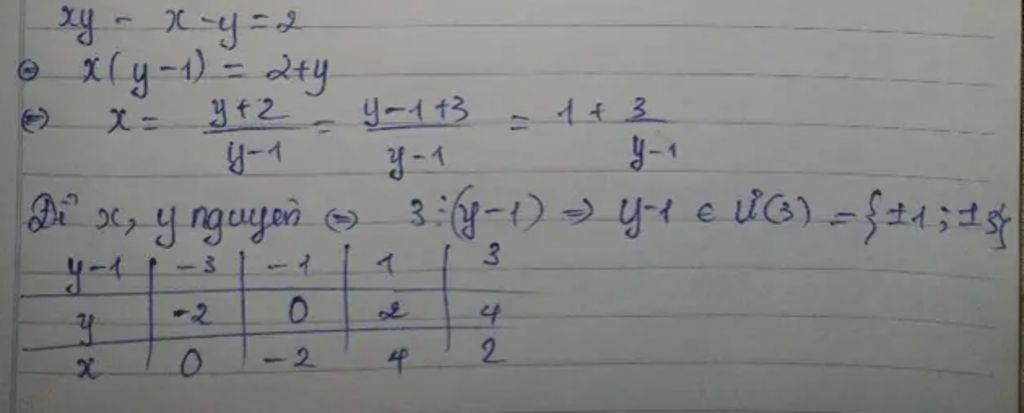 xy - x - y = 2
⇔ x(y-1) = 2+y
⇔ x = \frac{y+2}{y-1} = \frac{y-1+3}{y-1} = 1 + \frac{3}{y-1}
Để x, y nguyên ⇔ 3 ⋮ (y-1) ⇒ y-1 ∈ Ư(3) = {±1; ±3}
y-1 | -3 | -1 | 1 | 3
y | -2 | 0 | 2 | 4
x | 0 | -2 | 4 | 2